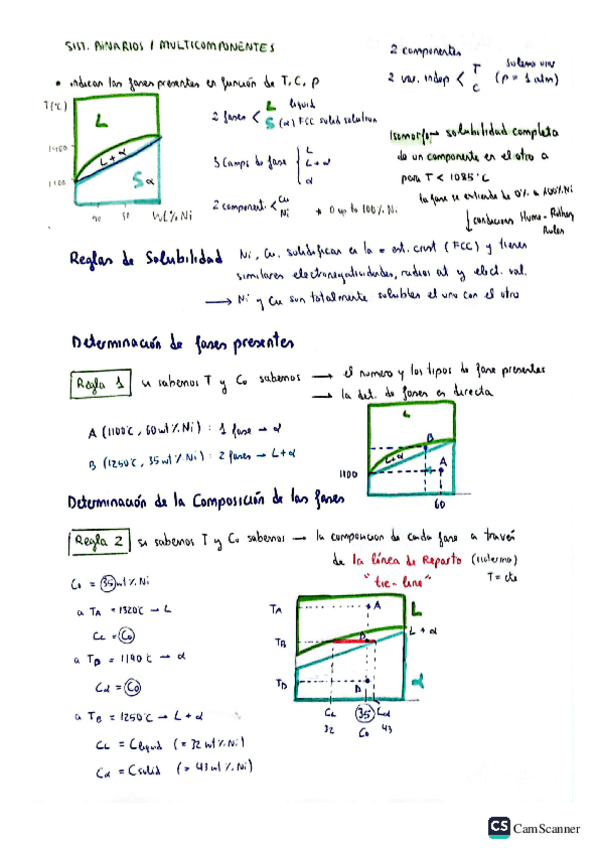 SIST. BINARIOS / MULTICOMPONENTES
2 componentes
2 var. indep < T C (p = 1 atm)
• indican las fases presentes en función de T, C, p
T(°C)
L
L + α
S α
1100
50
Wt% Ni
2 fases < L liquid
S (α) FCC solid solution
3 Camps de fase { L
L + α
α
2 component. < Cu
Ni
* 0 up to 100% Ni
Isomorfo → solubilidad completa
de un componente en el otro a
para T < 1085°C
la fase se extiende de 0% a 100% Ni
condiciones Hume-Rothery
Rules
Reglas de Solubilidad Ni, Cu. solidifican en la = est. crist (FCC) y tienen
similares electronegatividades, radios at y elect. val.
→ Ni y Cu son totalmente solubles el uno con el otro
Determinación de fases presentes
Regla 1 si sabemos T y Co sabemos → el numero y los tipos de fase presentes
→ la det. de fases es directa
A (1100°C, 60 wt% Ni) : 1 fase → α
B (1250°C, 35 wt% Ni) : 2 fases → L+α
L
B
L+α
A
1100
60
Determinación de la Composición de las fases
Regla 2 si sabemos T y Co sabemos → la composicion de cada fase a través
de la línea de Reparto (isoterma)
"tie-line" T = cte
Co = 35 wt% Ni
a TA = 1320°C → L
CL = Co
a TD = 1190°C → α
Cα = Co
a TB = 1250°C → L + α
CL = Cliquid (= 32 wt% Ni)
Cα = Csolid (= 43 wt% Ni)
TA
A
L
TB
B
L + α
TD
D
α
CL 35 Cα
32 Co 43
CS CamScanner